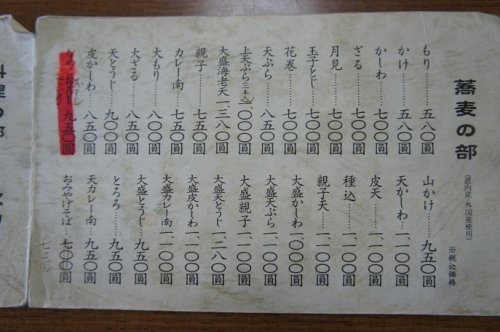 蕎麦の部
(道内産・外国産使用)
※税込価格
もり……五八〇圓
かけ……五八〇圓
かしわ……七五〇圓
ざる……七五〇圓
月見……七五〇圓
玉子とじ……七五〇圓
花巻……七五〇圓
天ぷら……九五〇圓
上天ぷら
大盛海老天 一、三八〇圓
親子……七五〇圓
カレー南……七五〇圓
大もり……八〇〇圓
大ざる……九五〇圓
天とうじ……九〇〇圓
皮かしわ……八五〇圓
九五〇圓
山かけ……九五〇圓
天かしわ……一、一〇〇圓
皮天……一、一〇〇圓
種込……一、一〇〇圓
親子天……一、一〇〇圓
大盛かしわ……一、〇〇〇圓
大盛天ぷら……一、一〇〇圓
大盛親子……一、一〇〇圓
大盛天とうじ 一、二八〇圓
大盛皮かしわ 一、一〇〇圓
大盛カレー南 一、一〇〇圓
大盛とうじ……九五〇圓
とろろ……九五〇圓
天カレー南……九五〇圓
おみやげそば……七〇〇圓